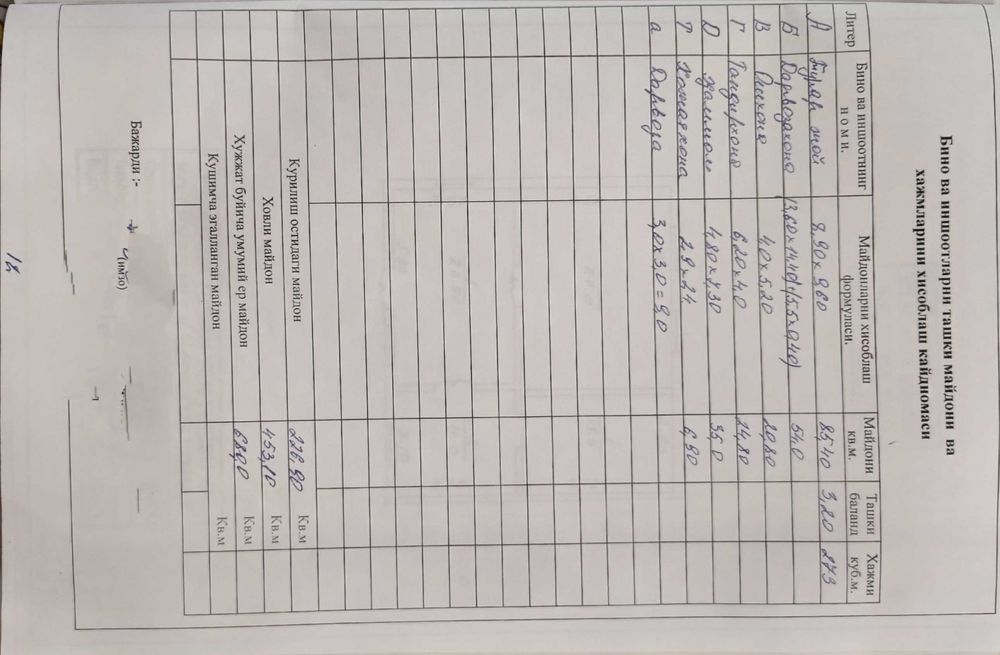 Бино ва иншоотларни ташки майдони ва
хажмларини хисоблаш кайдномаси
Литер Бино ва иншоотнинг номи. Майдонларни хисоблаш формуласи. Майдони кв.м. Ташки баланд Хажми куб.м.
А Турар жой 8,90 х 9,60 85,40 3,20 273
Б Дарвозахона 54,0
В Ошхона 4,0 х 5,20 20,80
Г Тандирхона 6,20 х 4,0 24,80
Д 4,80 х 7,30 35,0
2,9 х 2,4 6,90
а Дарвоза 3,0 х 3,0 = 9,0
Курилиш остидаги майдон 226,90 Кв.м
Ховли майдон 453,10 Кв.м
Хужжат буйича умумий ер майдон 680,0 Кв.м
Кушимча эгалланган майдон Кв.м
Бажарди :-
(имзо)